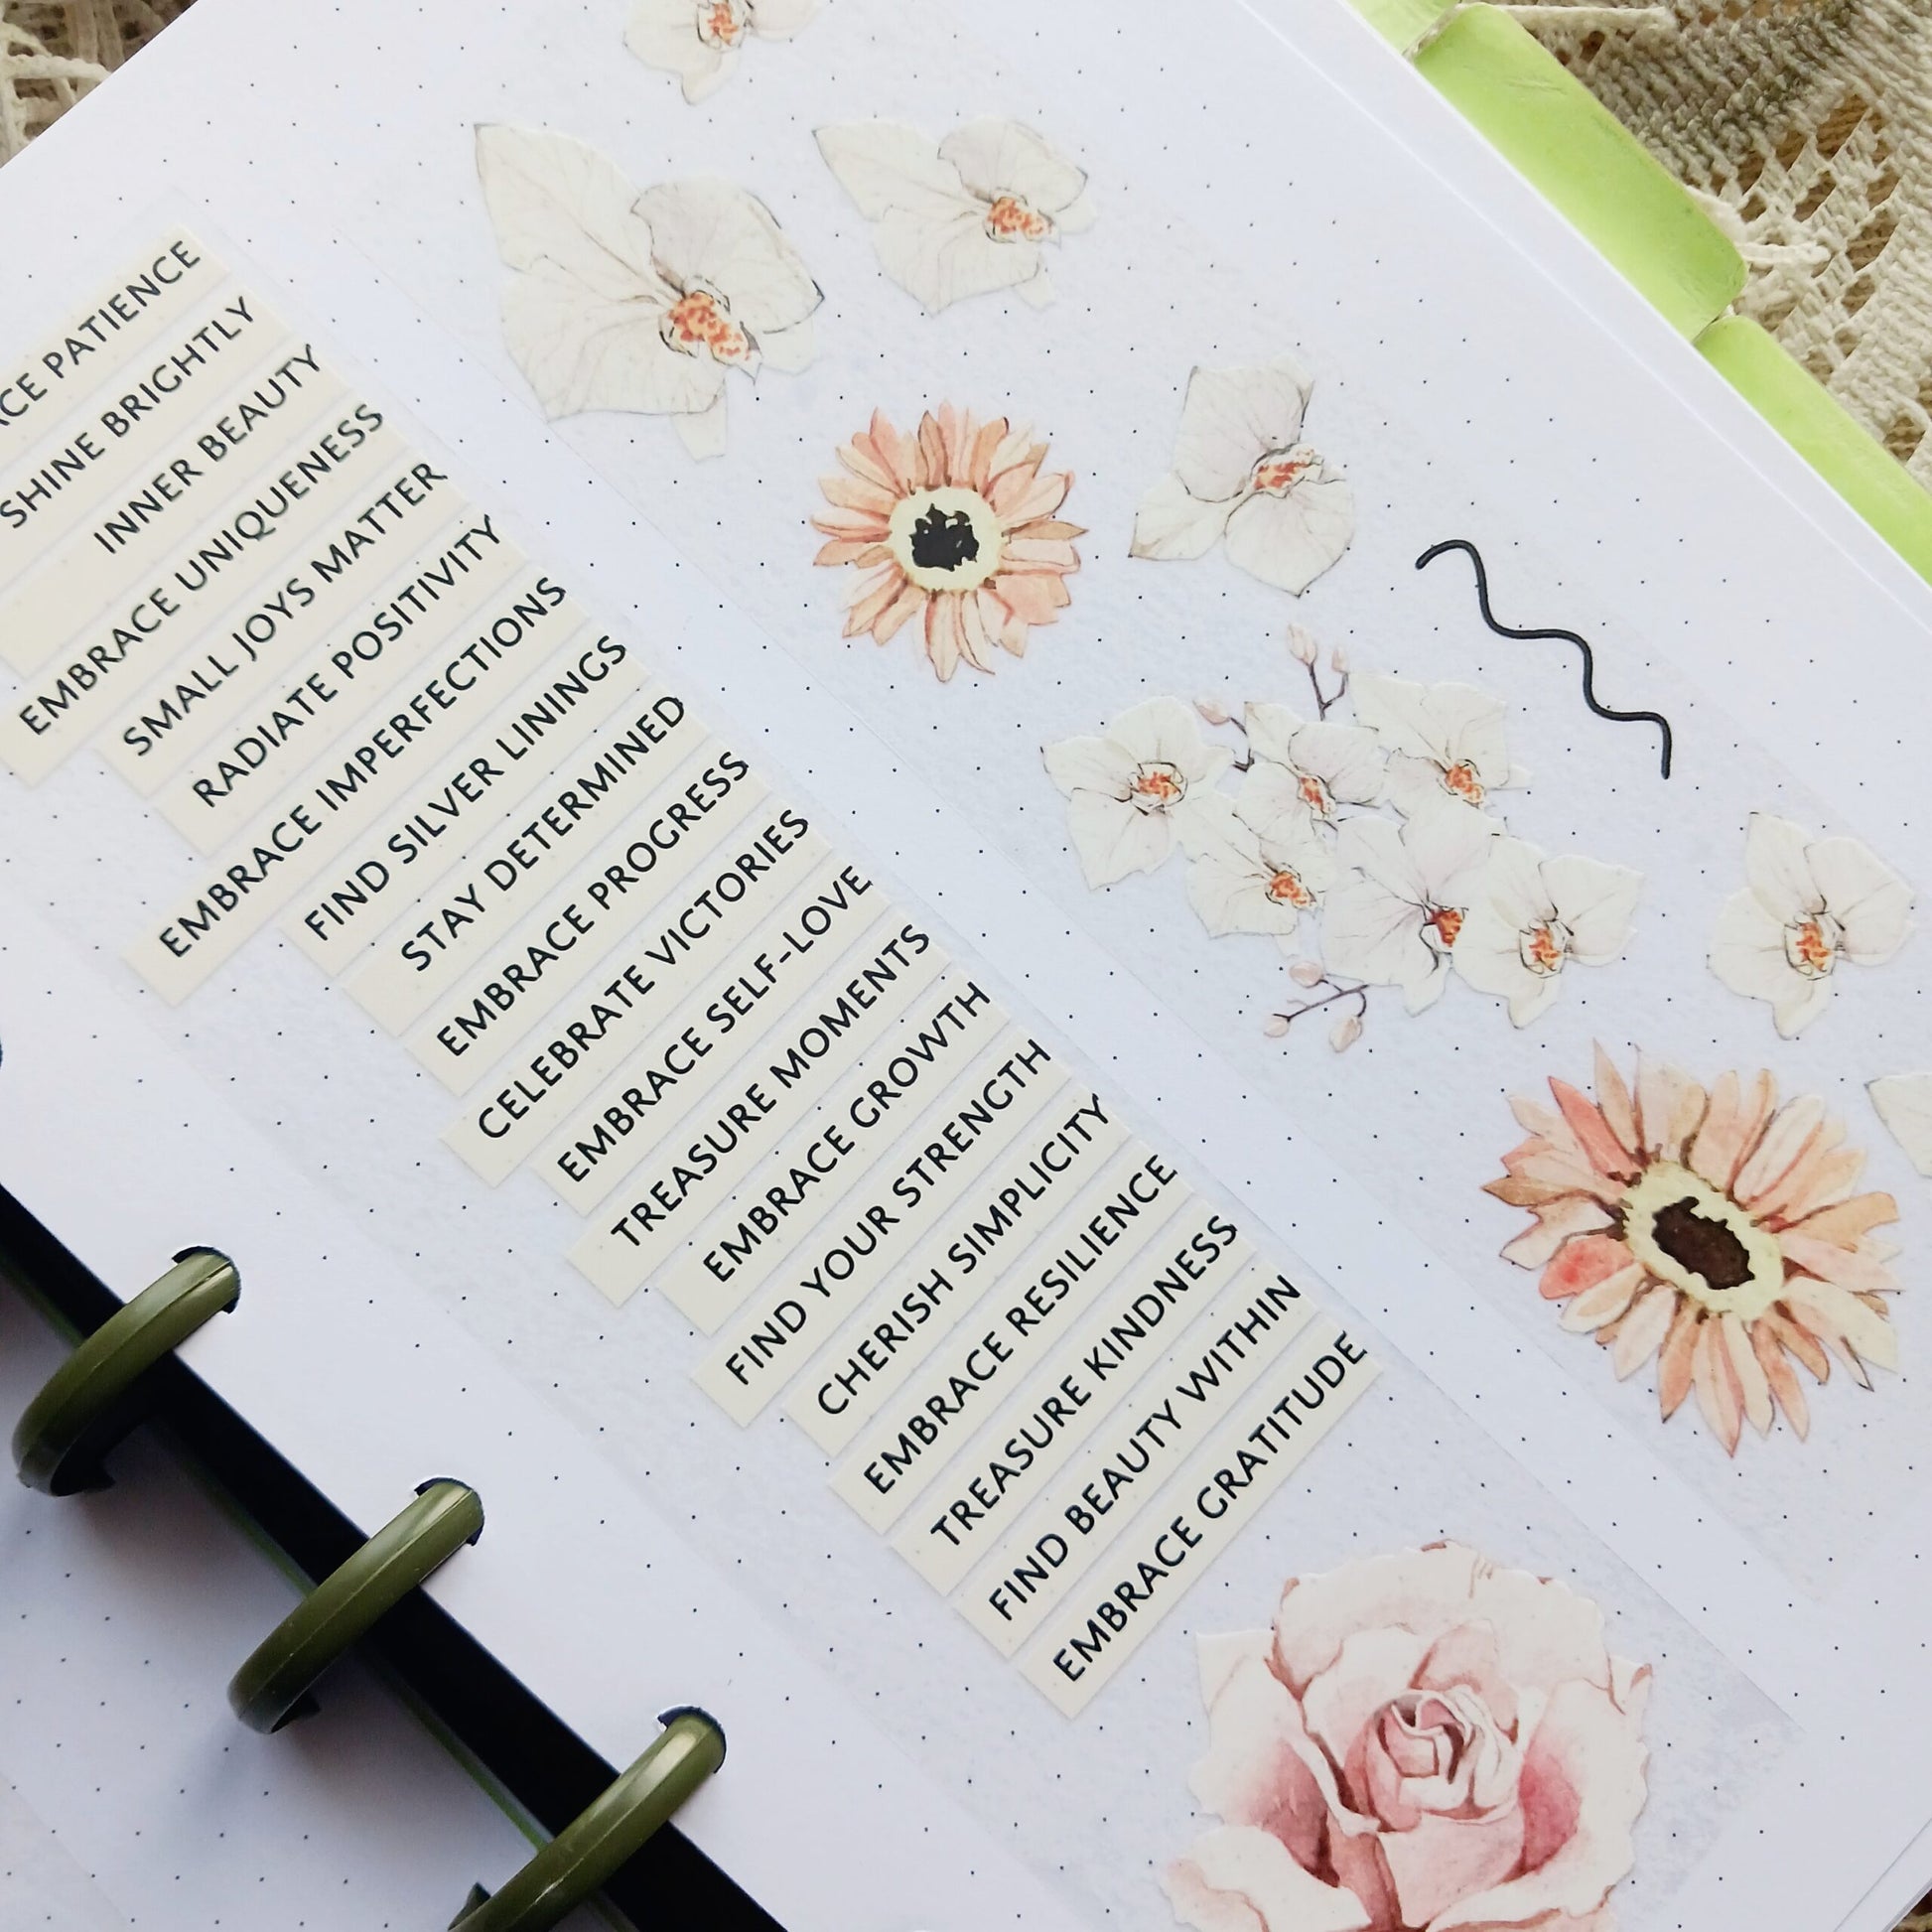 PATIENCE
SHINE BRIGHTLY
INNER BEAUTY
EMBRACE UNIQUENESS
SMALL JOYS MATTER
RADIATE POSITIVITY
EMBRACE IMPERFECTIONS
FIND SILVER LININGS
STAY DETERMINED
EMBRACE PROGRESS
CELEBRATE VICTORIES
EMBRACE SELF-LOVE
TREASURE MOMENTS
EMBRACE GROWTH
FIND YOUR STRENGTH
CHERISH SIMPLICITY
EMBRACE RESILIENCE
TREASURE KINDNESS
FIND BEAUTY WITHIN
EMBRACE GRATITUDE